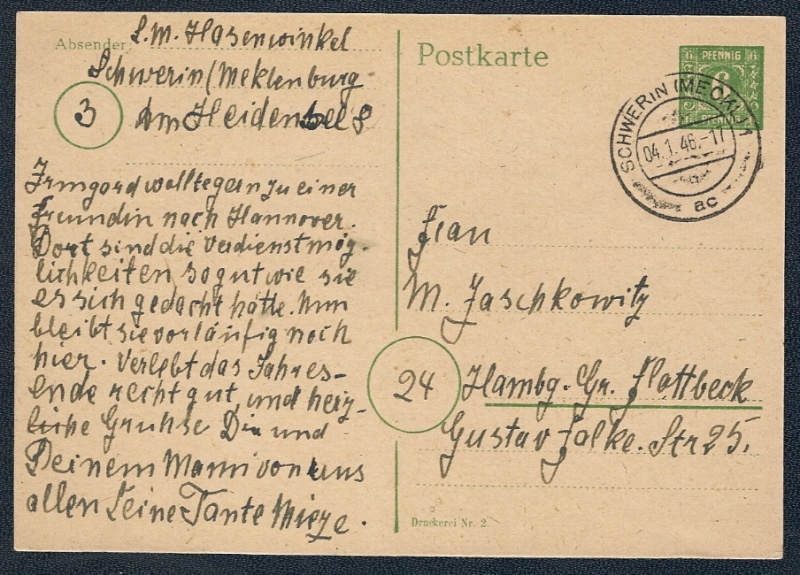 Absender: L.M. Hasenwinkel
Schwerin/Meklenburg
3 Am Heidensee 8
Irmgard wollte gern zu einer
Freundin nach Hannover.
Dort sind die Verdienstmög-
lichkeiten so gut wie sie
es sich gedacht hatte. Nun
bleibt sie vorläufig noch
hier. Verlebt das Jahres-
ende recht gut, und herz-
liche Grühse Dir und
Deinem Mami von uns
allen Deine Tante Mieze.
Postkarte
6 PFENNIG 6
6
6 PFENNIG 6
SCHWERIN (MECKL) 1
04.1.46.-17
ac
Frau
M. Jaschkowitz
24 Hambg. Gr. Flottbeck
Gustav Falke. Str 25.
Druckerei Nr. 2